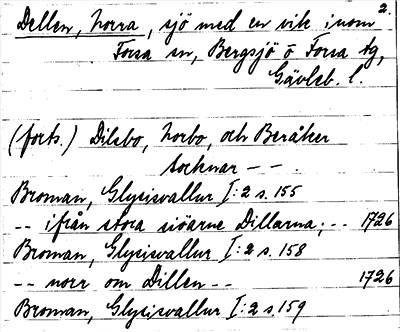 2.
Dellen, Norra, sjö med en vik inom
Forsa sn, Bergsjö o Forsa tg,
Gävleb. l.
(forts.) Dilsbo, Norbo, och Beråker
socknar - - .
Broman, Glysisvallur I:2 s. 155
-- ifrån stora siöarne Dillarna; -- 1726
Broman, Glysisvallur I:2 s. 158
-- norr om Dillen -- 1726
Broman, Glysisvallur I:2 s. 159